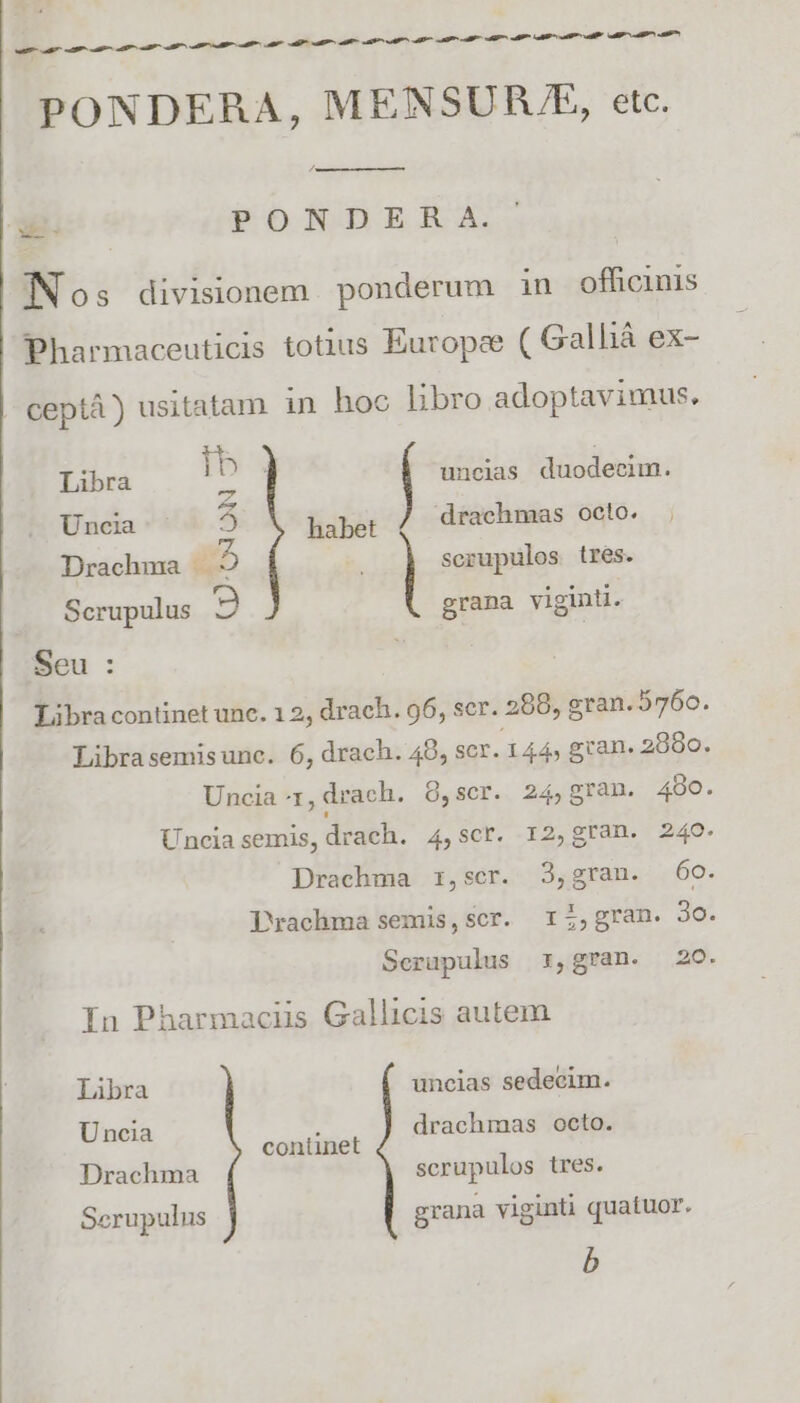 PONDERA, MENSURÆ, etc.
PONDERA.
Nos divisionem ponderum in officinis
Pharmaceuticis totius Europæ ( Galliâ ex-
ceptâ ) usitatam in hoc libro adoptavimus.
Libra ℔ habet uncias duodecim.
Uncia ℥ drachmas octo.
Drachma ʒ scrupulos tres.
Scrupulus ℈ grana viginti.
Seu :
Libra continet unc. 12, drach. 96, scr. 288, gran. 5760.
Libra semis unc. 6, drach. 48, scr. 144, gran. 2880.
Uncia 1, drach. 8, scr. 24, gran. 480.
Uncia semis, drach. 4, scr. 12, gran. 240.
Drachma 1, scr. 3, gran. 60.
Drachma semis, scr. 1½, gran. 30.
Scrupulus 1, gran. 20.
In Pharmaciis Gallicis autem
Libra continet uncias sedecim.
Uncia drachmas octo.
Drachma scrupulos tres.
Scrupulus grana viginti quatuor.
b